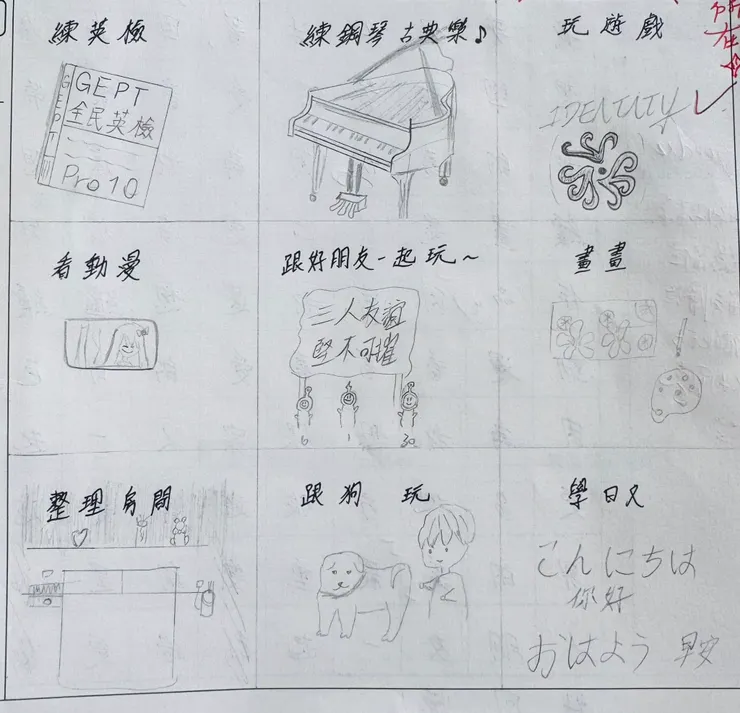 練英檢
GEPT
GEPT
全民英檢
Pro10
練鋼琴古典樂♪
玩遊戲
IDENTITY
看動漫
跟好朋友一起玩~
三人友誼
堅不可摧
6 1 30
畫畫
整理房間
跟狗玩
學日文
こんにちは
你好
おはよう 早安